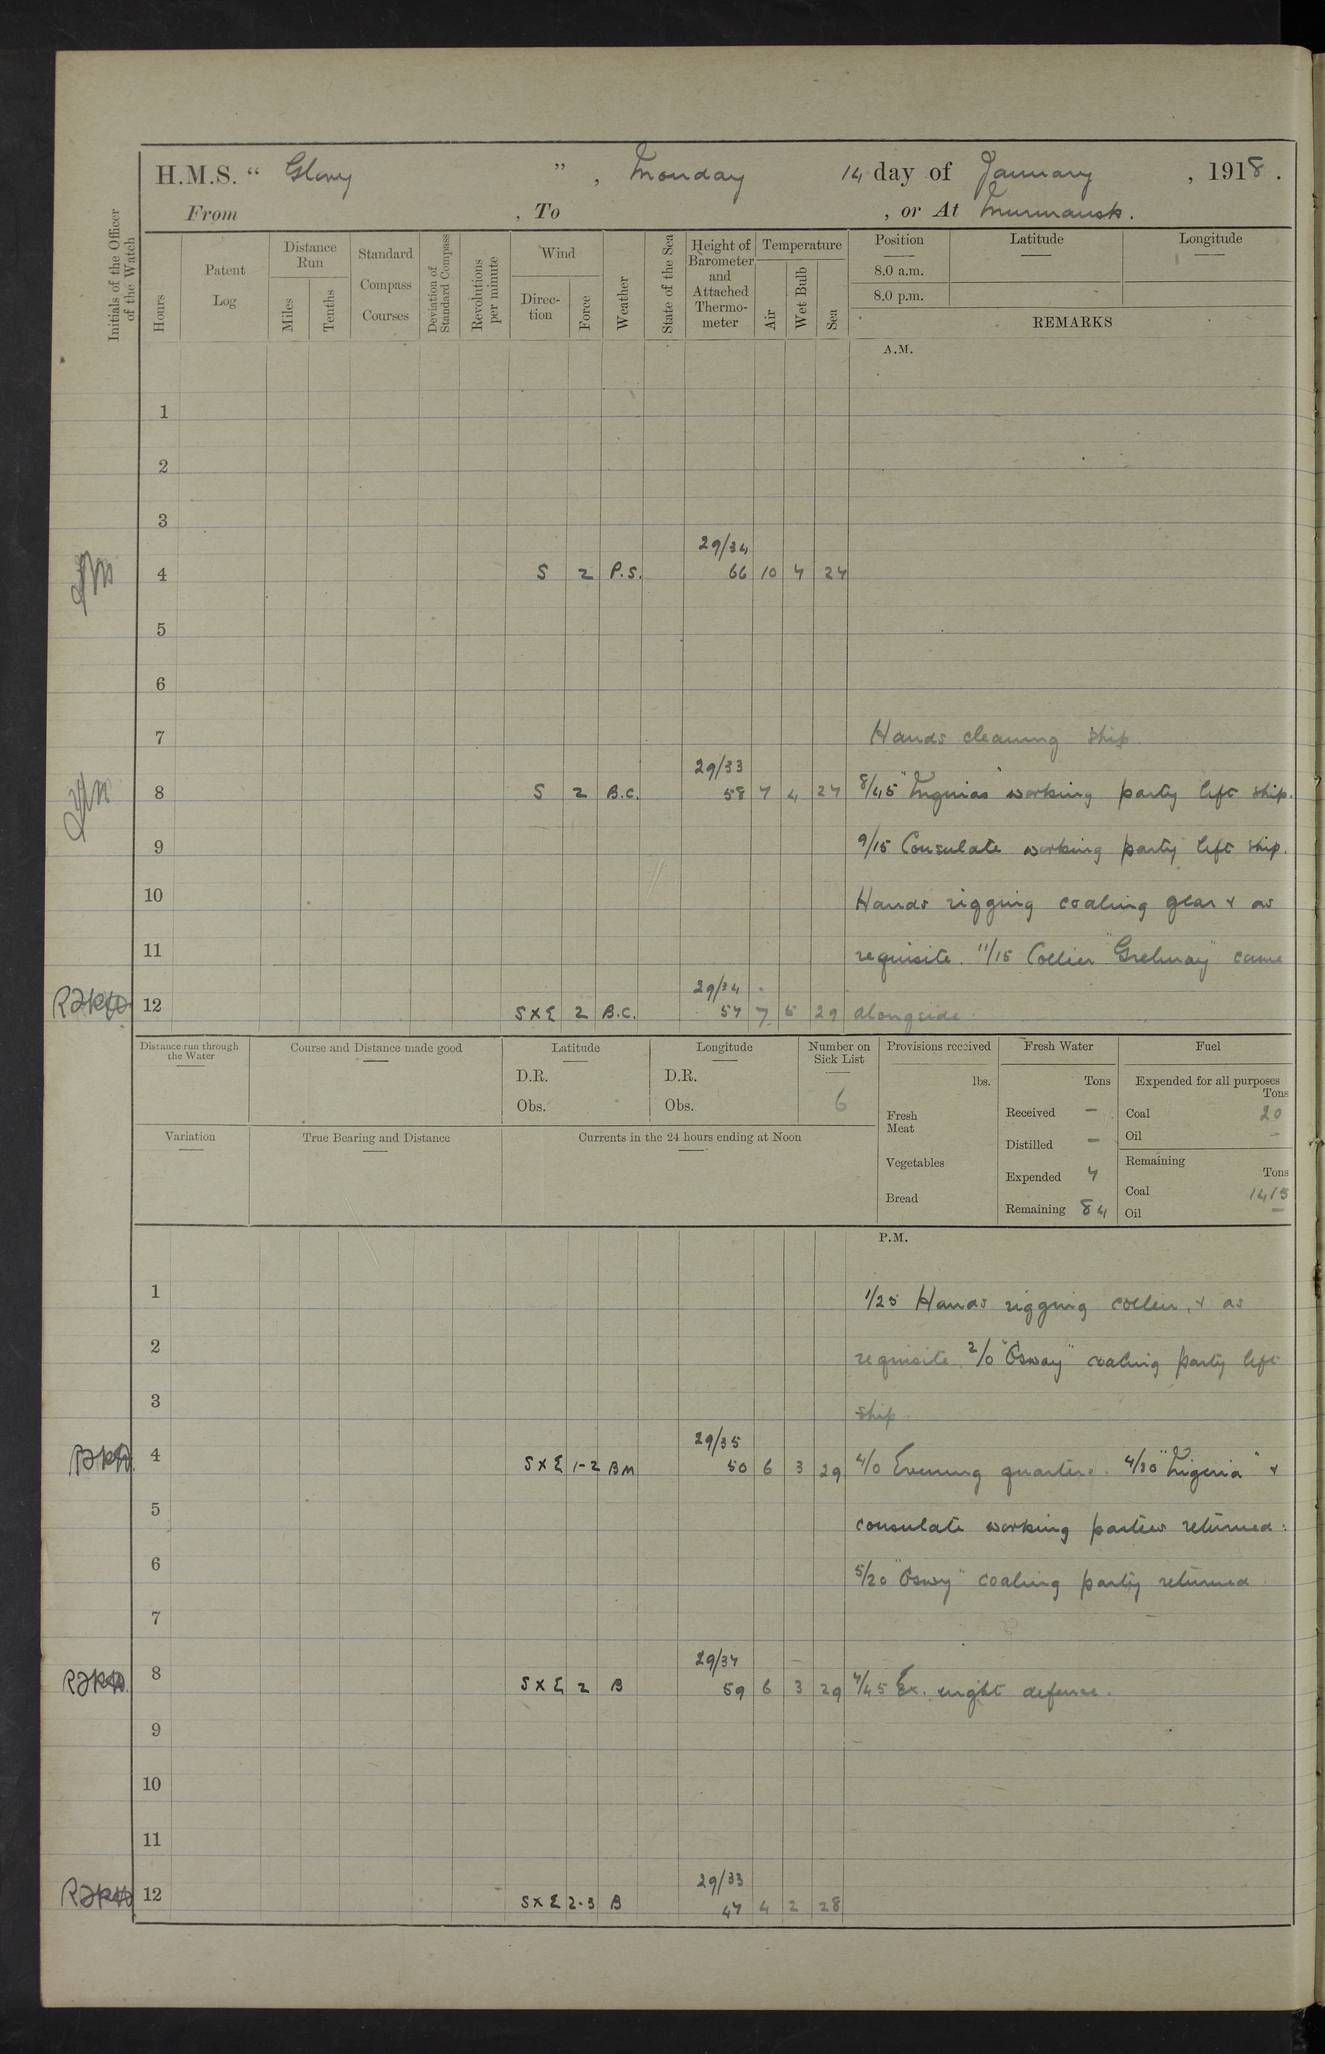 H.M.S. “ Glory ” , Monday 14 day of January , 1918 .
From , To , or At Murmansk.
Initials of the Officer of the Watch
Hours
Patent Log
Distance Run
Miles
Tenths
Standard Compass Courses
Deviation of Standard Compass
Revolutions per minute
Wind
Direc-tion
Force
Weather
State of the Sea
Height of Barometer and Attached Thermo-meter
Temperature
Air
Wet Bulb
Sea
Position
Latitude
Longitude
8.0 a.m.
8.0 p.m.
REMARKS
A.M.
1
2
3
29/34
4 S 2 P.S. 66 10 7 27
5
6
7 Hands cleaning ship
29/33
8 S 2 B.C. 58 7 4 27 8/45 working party left ship.
9 9/15 Consulate working party left ship.
10 Hands rigging coaling gear & as
11 requisite. 11/15 Collier came
29/34
12 SXE 2 B.C. 57 7 5 29 alongside.
Distance run through the Water
Course and Distance made good
Latitude
D.R.
Obs.
Longitude
D.R.
Obs.
Number on Sick List
6
Provisions received
lbs.
Fresh Meat
Vegetables
Bread
Fresh Water
Tons
Received -
Distilled -
Expended 7
Remaining 84
Fuel
Expended for all purposes
Tons
Coal 20
Oil -
Remaining
Tons
Coal 1415
Oil -
Variation
True Bearing and Distance
Currents in the 24 hours ending at Noon
P.M.
1 1/25 Hands rigging collier, & as
2 requisite. 2/0 "Osway" coaling party left
3 ship.
29/35
4 SXE 1-2 BM 50 6 3 29 4/0 Evening quarters. 4/30 "Nigeria" &
5 consulate working parties returned:
6 5/20 "Oswy" coaling party returned
7
29/34
8 SXE 2 B 59 6 3 29 7/45 Ex. night defence.
9
10
11
29/33
12 SXE 2-3 B 47 4 2 28